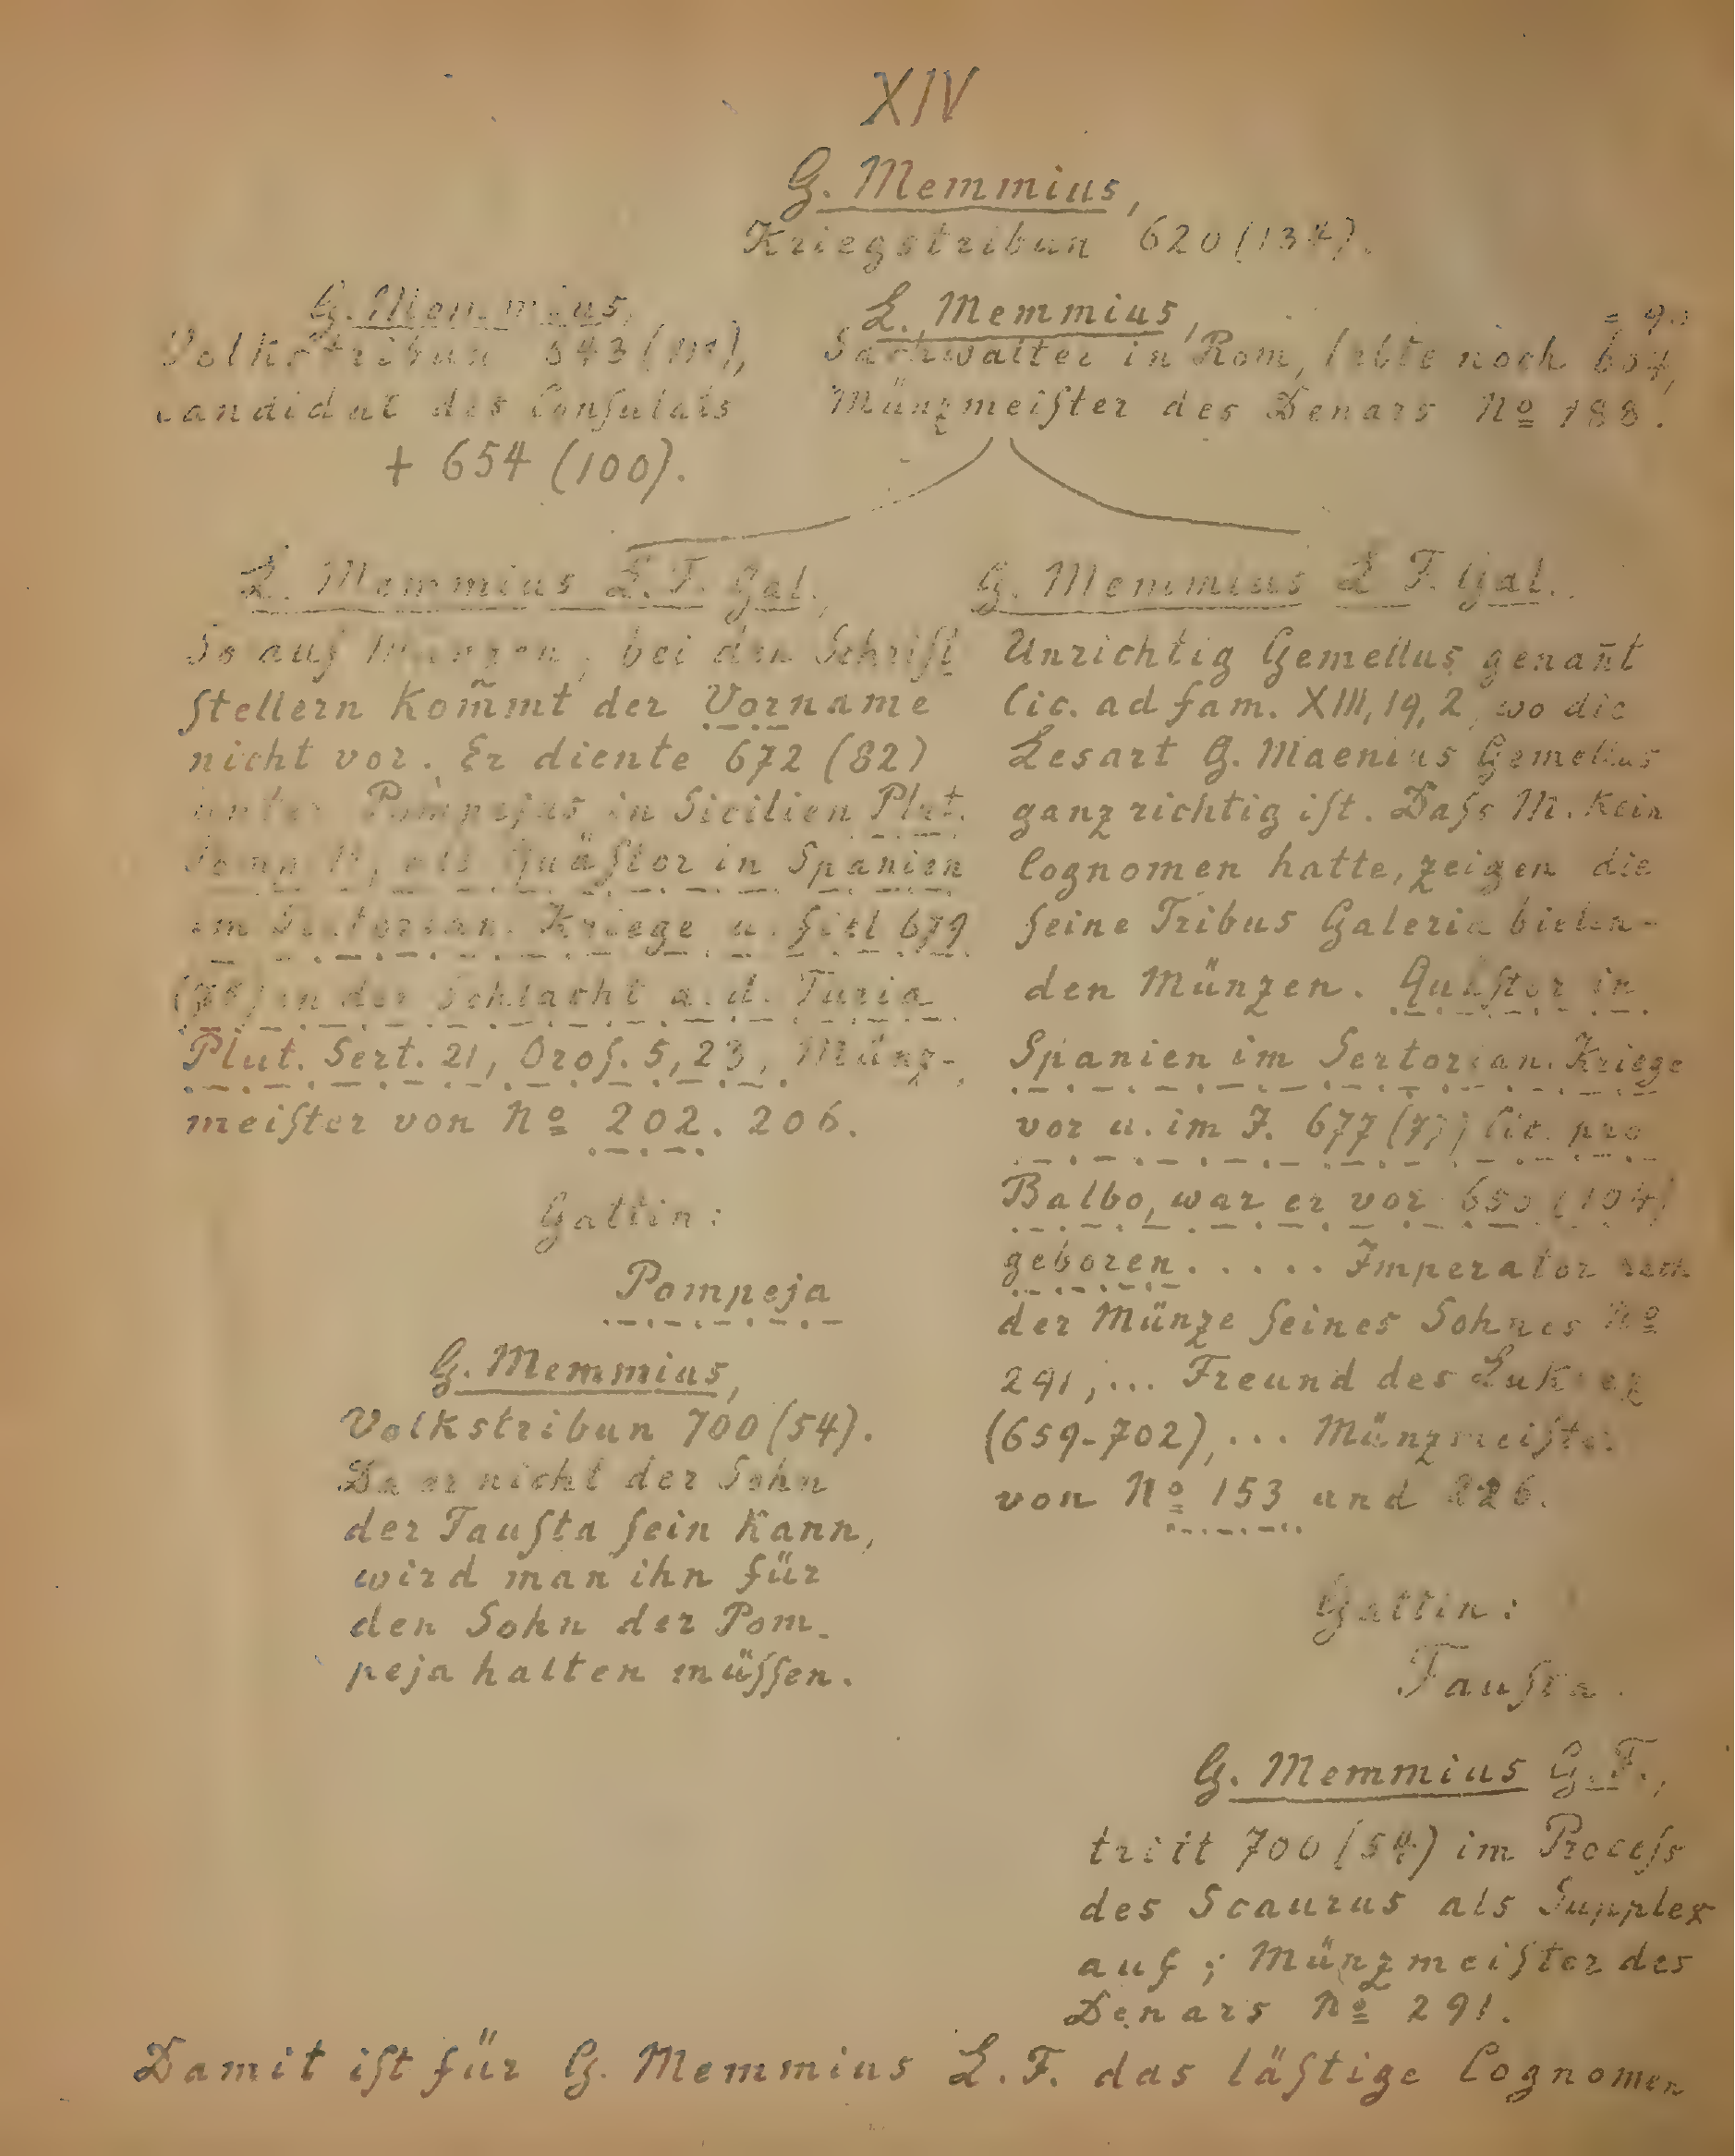 XIV
G. Memmius,
Kriegstribun 620 (134).
G. Memmius,
Volkstribun 643 (111),
Candidat des Conſulats
+ 654 (100).
L. Memmius,
= 90
Sachwalter in Rom, lebte noch 664,
Münzmeiſter des Denars Nº 188.
L. Memmius L. F. Gal.,
So auf Münzen, bei den Schrift
ſtellern kom̃mt der Vorname
nicht vor. Er diente 672 (82)
unter Pompejus in Sicilien Plut.
Pomp. 11, als Quäſtor in Spanien
im Sertorian. Kriege u. fiel 679
(75) in der Schlacht a. d. Turia
Plut. Sert. 21, Oroſ. 5, 23, Münz-
meiſter von Nº 202. 206.
Gattin:
Pompeja
G. Memmius,
Volkstribun 700 (54).
Da er nicht der Sohn
der Fauſta ſein kann,
wird man ihn für
den Sohn der Pom-
peja halten müſſen.
G. Memmius L F. Gal.
Unrichtig Gemellus genan̄t
Cic. ad fam. XIII, 19, 2, wo die
Lesart G. Maenius Gemellus
ganz richtig iſt. Daſs M. kein
Cognomen hatte, zeigen die
ſeine Tribus Galeria bieten-
den Münzen. Quäſtor in
Spanien im Sertorian. Kriege
vor u. im J. 677 (77) Cic. pro
Balbo, war er vor 650 (104)
geboren...... Imperator nach
der Münze ſeines Sohnes Nº
291,... Freund des Lukrez
(659-702),... Münzmeiſter
von Nº 153 und 226.
Gattin:
Fauſta.
G. Memmius G. F.,
tritt 700 (54) im Proceſs
des Scaurus als Supplex
auf; Münzmeiſter des
Denars Nº 291.
Damit iſt für G. Memmius L. F. das läſtige Cognomen